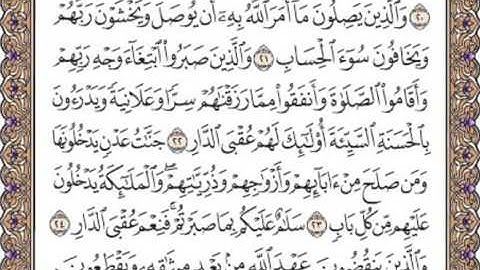 ۲۰ وَٱلَّذِينَ يَصِلُونَ مَآ أَمَرَ ٱللَّهُ بِهِۦٓ أَن يُوصَلَ وَيَخْشَوْنَ رَبَّهُمْ
وَيَخَافُونَ سُوٓءَ ٱلْحِسَابِ ۲۱ وَٱلَّذِينَ صَبَرُوا۟ ٱبْتِغَآءَ وَجْهِ رَبِّهِمْ
وَأَقَامُوا۟ ٱلصَّلَوٰةَ وَأَنفَقُوا۟ مِمَّا رَزَقْنَٰهُمْ سِرًّا وَعَلَانِيَةً وَيَدْرَءُونَ
بِٱلْحَسَنَةِ ٱلسَّيِّئَةَ أُو۟لَٰٓئِكَ لَهُمْ عُقْبَى ٱلدَّارِ ۲۲ جَنَّٰتُ عَدْنٍ يَدْخُلُونَهَا
وَمَن صَلَحَ مِنْ ءَابَآئِهِمْ وَأَزْوَٰجِهِمْ وَذُرِّيَّٰتِهِمْ ۖ وَٱلْمَلَٰٓئِكَةُ يَدْخُلُونَ
عَلَيْهِم مِّن كُلِّ بَابٍ ۲۳ سَلَٰمٌ عَلَيْكُم بِمَا صَبَرْتُمْ ۚ فَنِعْمَ عُقْبَى ٱلدَّارِ ۲٤
وَٱلَّذِينَ يَنقُضُونَ عَهْدَ ٱللَّهِ مِنۢ بَعْدِ مِيثَٰقِهِۦ وَيَقْطَعُونَ